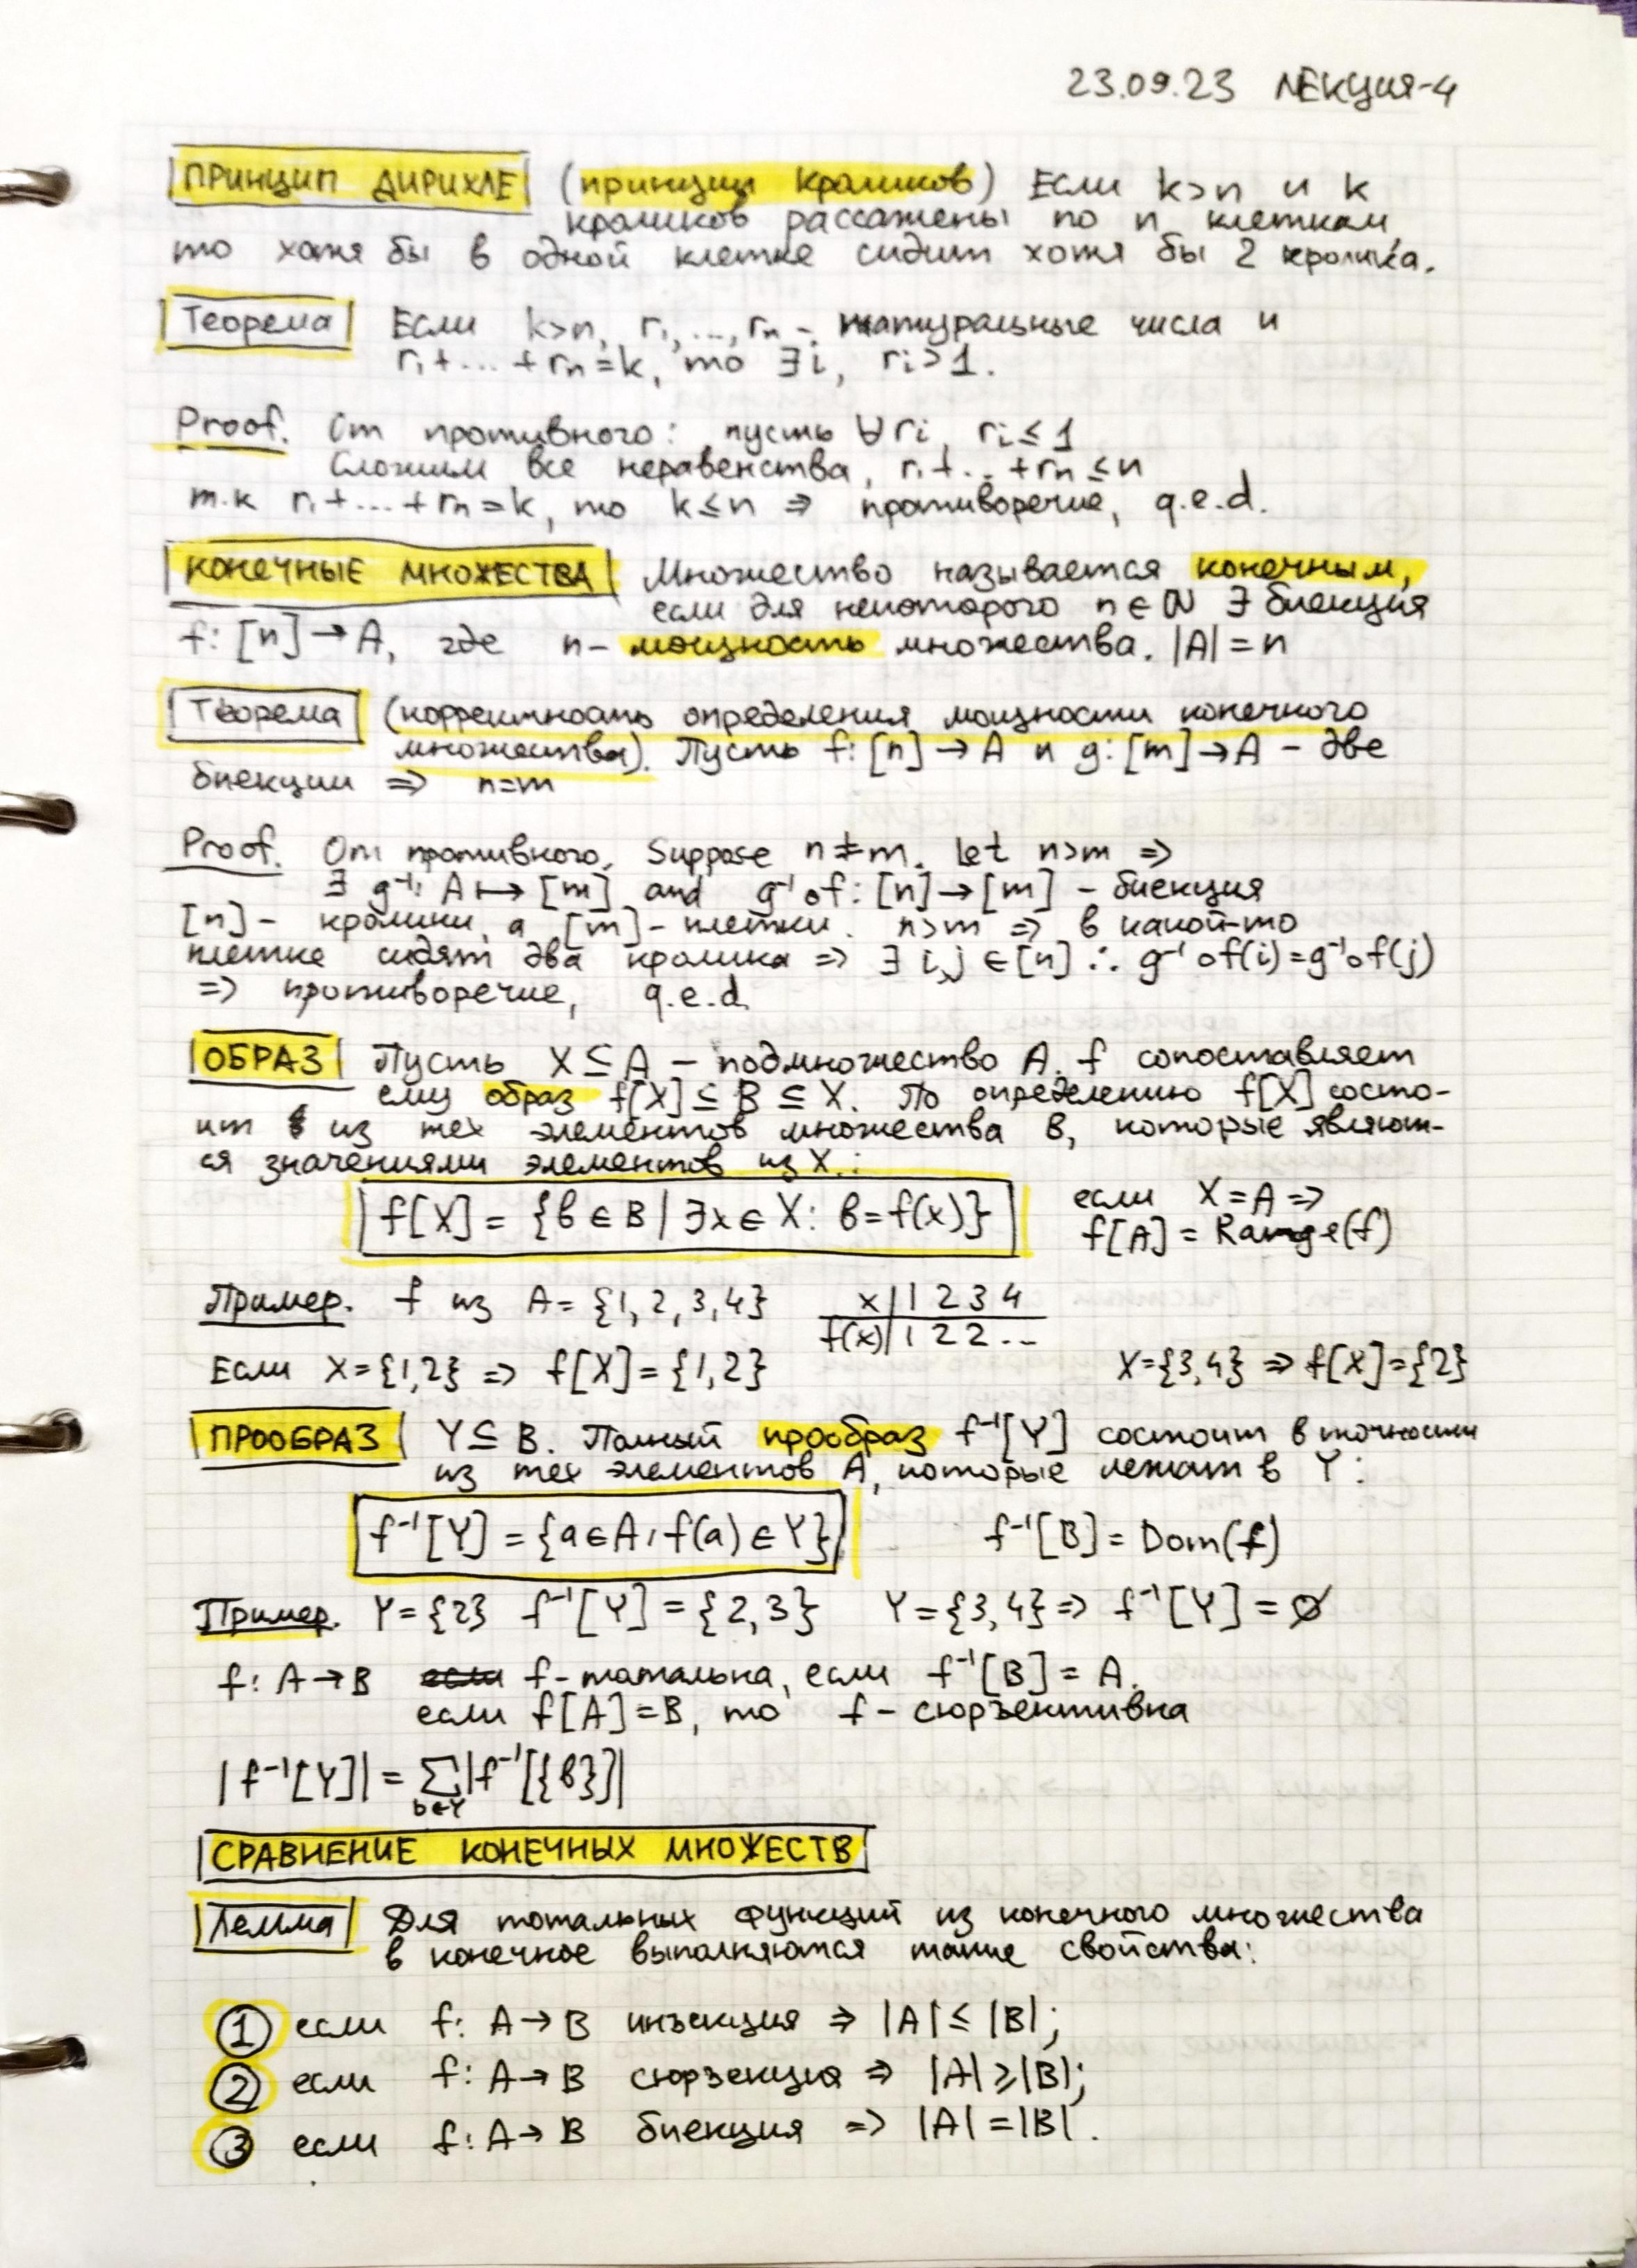 23.09.23 ЛЕКЦИЯ-4
ПРИНЦИП ДИРИХЛЕ (принцип кроликов) Если k>n и k
кроликов рассажены по n клеткам
то хотя бы в одной клетке сидит хотя бы 2 кролика.
Теорема Если k>n, r₁,...,rₙ - натуральные числа и
r₁+...+rₙ=k, то ∃i, rᵢ>1.
Proof. От противного: пусть ∀rᵢ, rᵢ≤1
Сложим все неравенства, r₁+...+rₙ≤n
т.к r₁+...+rₙ=k, то k≤n ⇒ противоречие, q.e.d.
КОНЕЧНЫЕ МНОЖЕСТВА Множество называется конечным,
если для некоторого n∈ℕ ∃ биекция
f: [n]→A, где n- мощность множества. |A|=n
Теорема (корректность определения мощности конечного
множества). Пусть f: [n]→A и g: [m]→A - две
биекции ⇒ n=m
Proof. От противного. Suppose n≠m. Let n>m ⇒
∃ g⁻¹: A↦[m] and g⁻¹∘f: [n]→[m] - биекция
[n]- кролики, а [m]- клетки. n>m ⇒ в какой-то
клетке сидят два кролика ⇒ ∃ i,j ∈[n] ∴ g⁻¹∘f(i)=g⁻¹∘f(j)
⇒ противоречие, q.e.d.
ОБРАЗ Пусть X⊆A - подмножество A. f сопоставляет
ему образ f[X]⊆B⊆X. По определению f[X] состо-
ит из тех элементов множества B, которые являют-
ся значениями элементов из X.:
f[X] = {b∈B | ∃x∈X: b=f(x)} если X=A ⇒
f[A] = Range(f)
Пример. f из A={1,2,3,4} x | 1 2 3 4
f(x) | 1 2 2 --
Если X={1,2} ⇒ f[X]={1,2} X={3,4} ⇒ f[X]={2}
ПРООБРАЗ Y⊆B. Полный прообраз f⁻¹[Y] состоит в точности
из тех элементов A, которые лежат в Y:
f⁻¹[Y] = {a∈A, f(a)∈Y} f⁻¹[B] = Dom(f)
Пример. Y={2} f⁻¹[Y]={2,3} Y={3,4} ⇒ f⁻¹[Y]=∅
f: A→B если f-тотальна, если f⁻¹[B]=A.
если f[A]=B, то f- сюръективна
|f⁻¹[Y]| = ∑ |f⁻¹[{b}]|
b∈Y
СРАВНЕНИЕ КОНЕЧНЫХ МНОЖЕСТВ
Лемма Для тотальных функций из конечного множества
в конечное выполняются такие свойства:
① если f: A→B инъекция ⇒ |A|≤|B|;
② если f: A→B сюръекция ⇒ |A|⩾|B|;
③ если f: A→B биекция ⇒ |A|=|B|.